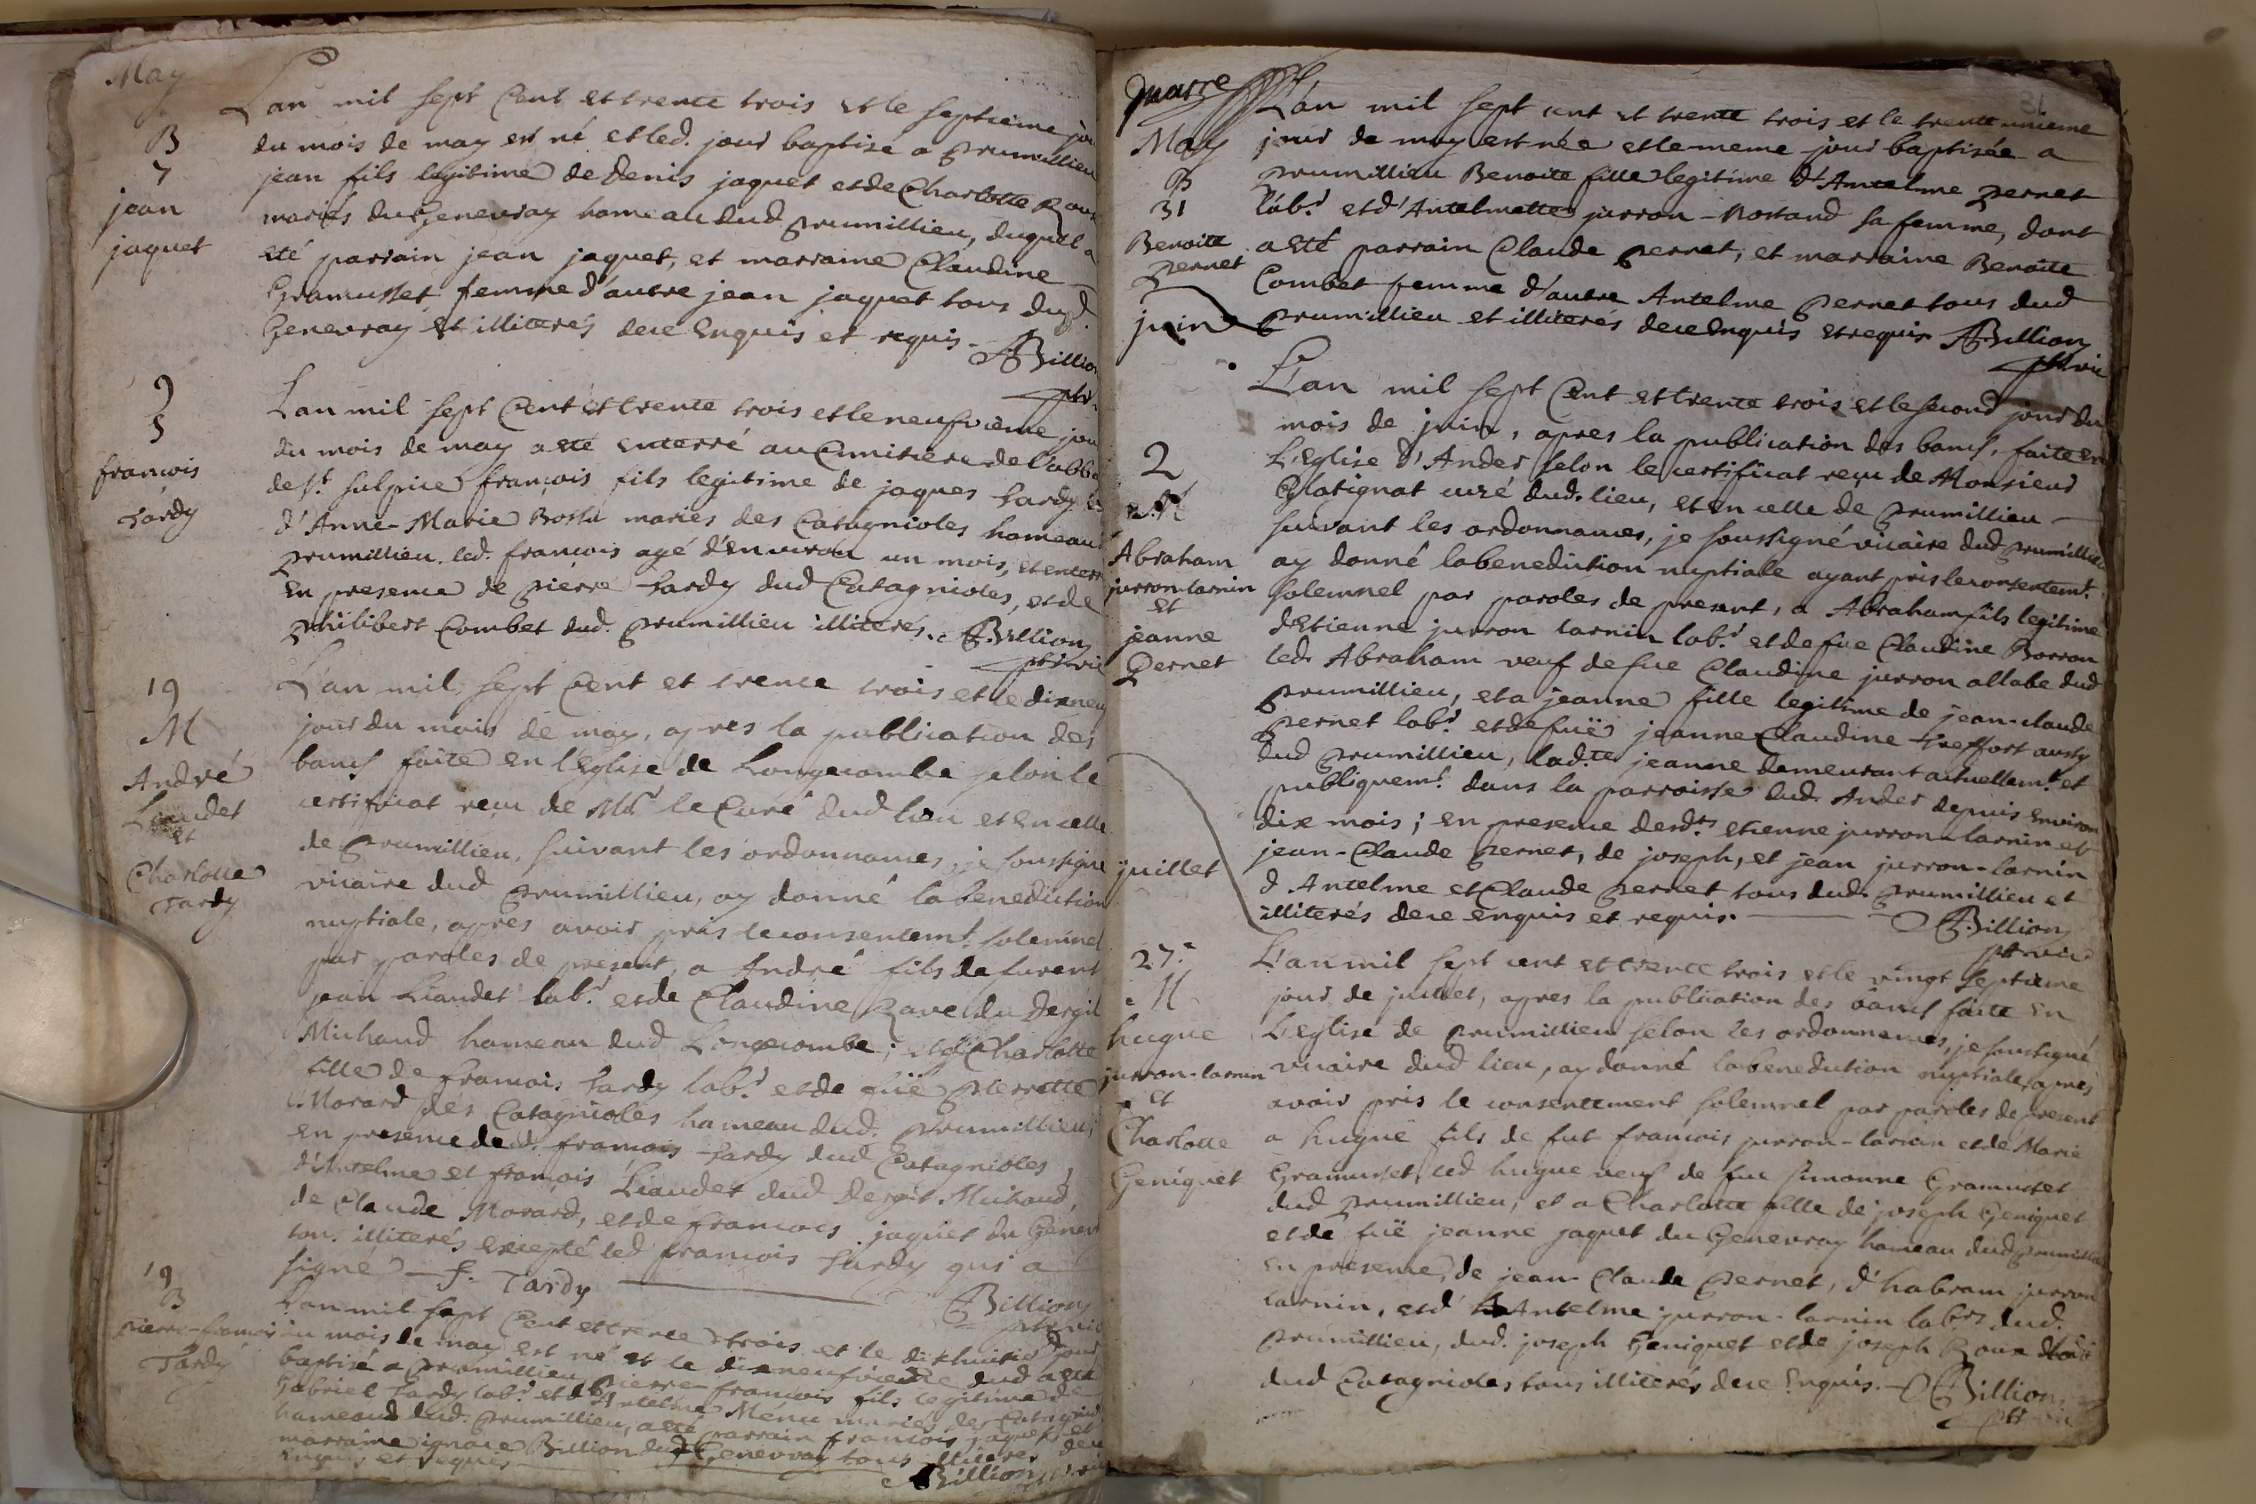 May
L'an mil sept Cent et trente trois et le septieme jou
du mois de may est né et led. jour baptisé a prumillieu
jean fils legitime de Denis jaquet et de Charlotte Roux
mariés du Genevray hameau dud prumillieu, duquel a
eté parrain jean jaquet, et marraine Claudine
Gramusset femme d'autre jean jaquet tous dud.
Genevray et illiterés de ce Enquis et requis. Billion
ptr.
B
7
jean
jaquet
L'an mil sept Cent et trente trois et le neufvieme jou
du mois de may a eté enterré au Cimitiere de l'abba
de St. sulpice françois fils legitime de jaques tardy et
d'Anne-Marie Bossu mariés des Catagnioles hameau
prumillieu. led. françois agé d'environ un mois, et enterr
En presence de pierre tardy dud Catagnioles, et de
philibert Combet dud. prumillieu illiterés. Billion
ptr vic
9
S
françois
tardy
L'an mil sept Cent et trente trois et le dixneuf
jour du mois de may, apres la publication des
bancs faite en l'Eglise de Longecombe selon le
certificat reçu de Mr le Curé dud lieu et en celle
de prumillieu, suivant les ordonnances, je soussigné
vicaire dud prumillieu, ay donné la benediction
nuptiale, apres avoir pris le consentemt. solemnel
par paroles de present, a André fils de furent
jean Liaudet lab.r et de Claudine Ravet du Dergit
Michaud hameau dud Longecombe; et a Charlotte
fille de françois tardy lab.r et de fuë pierrette
Morard des Catagnioles hameau dud. prumillieu;
En presence de d. françois tardy dud Catagnioles,
d'Antelme et françois Liaudet dud Dergit Michaud,
de Claude Morard, et de françois jaquet du Genev
tous illiterés excepté led françois tardy qui a
signé — f. Tardy
Billion
ptr vic
19
M
André
Liaudet
et
Charlotte
Tardy
L'an mil sept Cent et trente trois et le dixhuitie jour
du mois de may est né et le dixneufvieme dud a eté
baptisé a prumillieu pierre-françois fils legitime de
Gabriel tardy lab.r et d'Antelme Menu mariés des Catagnio
hameau dud. prumillieu, a eté parrain françois jaquet et
marraine ignace Billion dud Genevray tous illiteres de ce
Enquis et requis Billion
19
B
pierre-françois
Tardy
quatre
L'an mil sept cent et trente trois et le trente unieme
jour de may est née et le meme jour baptisée a
prumillieu Benoite fille legitime d'Antelme pernet
lab.r et d'Antelmette jurron-Rostand sa femme, dont
a eté parrain Claude pernet, et marraine Benoite
Combet femme d'autre Antelme pernet tous dud
prumillieu et illiterés de ce enquis et requis Billion
ptr vic
31
May
B
31
Benoite
pernet
juin
L'an mil sept Cent et trente trois et le second jour du
mois de juin, apres la publication des bancs, faite en
L'Eglise d'Ander selon le certificat reçu de Monsieur
Platignat curé dud. lieu, et en celle de prumillieu
suivant les ordonnances, je soussigné vicaire dud prumillieu
ay donné la benediction nuptiale ayant pris le consentemt.
solemnel par paroles de present, a Abraham fils legitime
d'Etienne jurron larnin lab.r et de fue Claudine Borron
led. Abraham veuf de fue Claudine jurron allabe dud
prumillieu, et a jeanne fille legitime de jean-claude
pernet lab.r et de fuë jeanne Claudine treffort aussy
dud prumillieu, lad.te jeanne demeurant actuellemt. et
publiquemt. dans la parroisse dud. Ander depuis environ
dix mois; en presence desd.ts etienne jurron-larnin et
jean-Claude pernet, de joseph, et jean jurron-larnin
d'Antelme et Claude pernet tous dud. prumillieu et
illiterés de ce enquis et requis. Billion
ptr vic
2
M
Abraham
jurron-larnin
et
jeanne
Pernet
juillet
L'an mil sept cent et trente trois et le vingt septieme
jour de juillet, apres la publication des bancs faite en
L'Eglise de prumillieu selon les ordonnances, je soussigné
vicaire dud lieu, ay donné la benediction nuptiale, apres
avoir pris le consentement solemnel par paroles de present
a hugue fils de fut françois jurron-larnin et de Marie
Gramusset, led hugue veuf de fue simonne Gramusset
dud prumillieu, et a Charlotte fille de joseph Geniquet
et de fuë jeanne jaquet du Genevray hameau dud prumillieu
En presence, de jean-Claude pernet, d'habram jurron
larnin, et d'Antelme jurron-larnin lab.rs dud.
prumillieu, dud. joseph Geniquet et de joseph Roux
dud Catagnioles tous illiterés de ce Enquis. Billion
ptr
27.
M
hugue
jurron-larnin
et
Charlotte
Geniquet